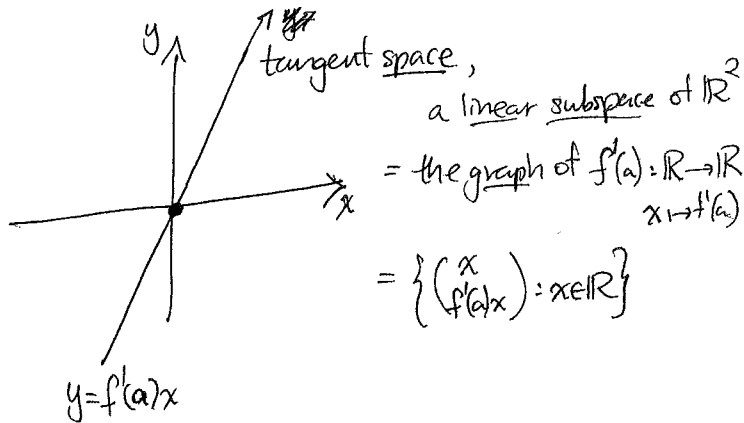 y
tangent space,
a linear subspace of ℝ²
= the graph of f'(a) : ℝ → ℝ
x ↦ f'(a)
x
= { ( x
f'(a)x ) : x ∈ ℝ }
y = f'(a)x